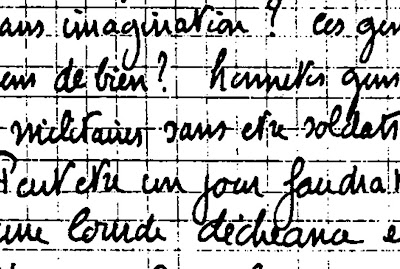 ans imagination ? ces gen
ens de bien ? honnetes gens
militaires sans etre soldats
Peut etre un jour faudra
une lourde décheance e